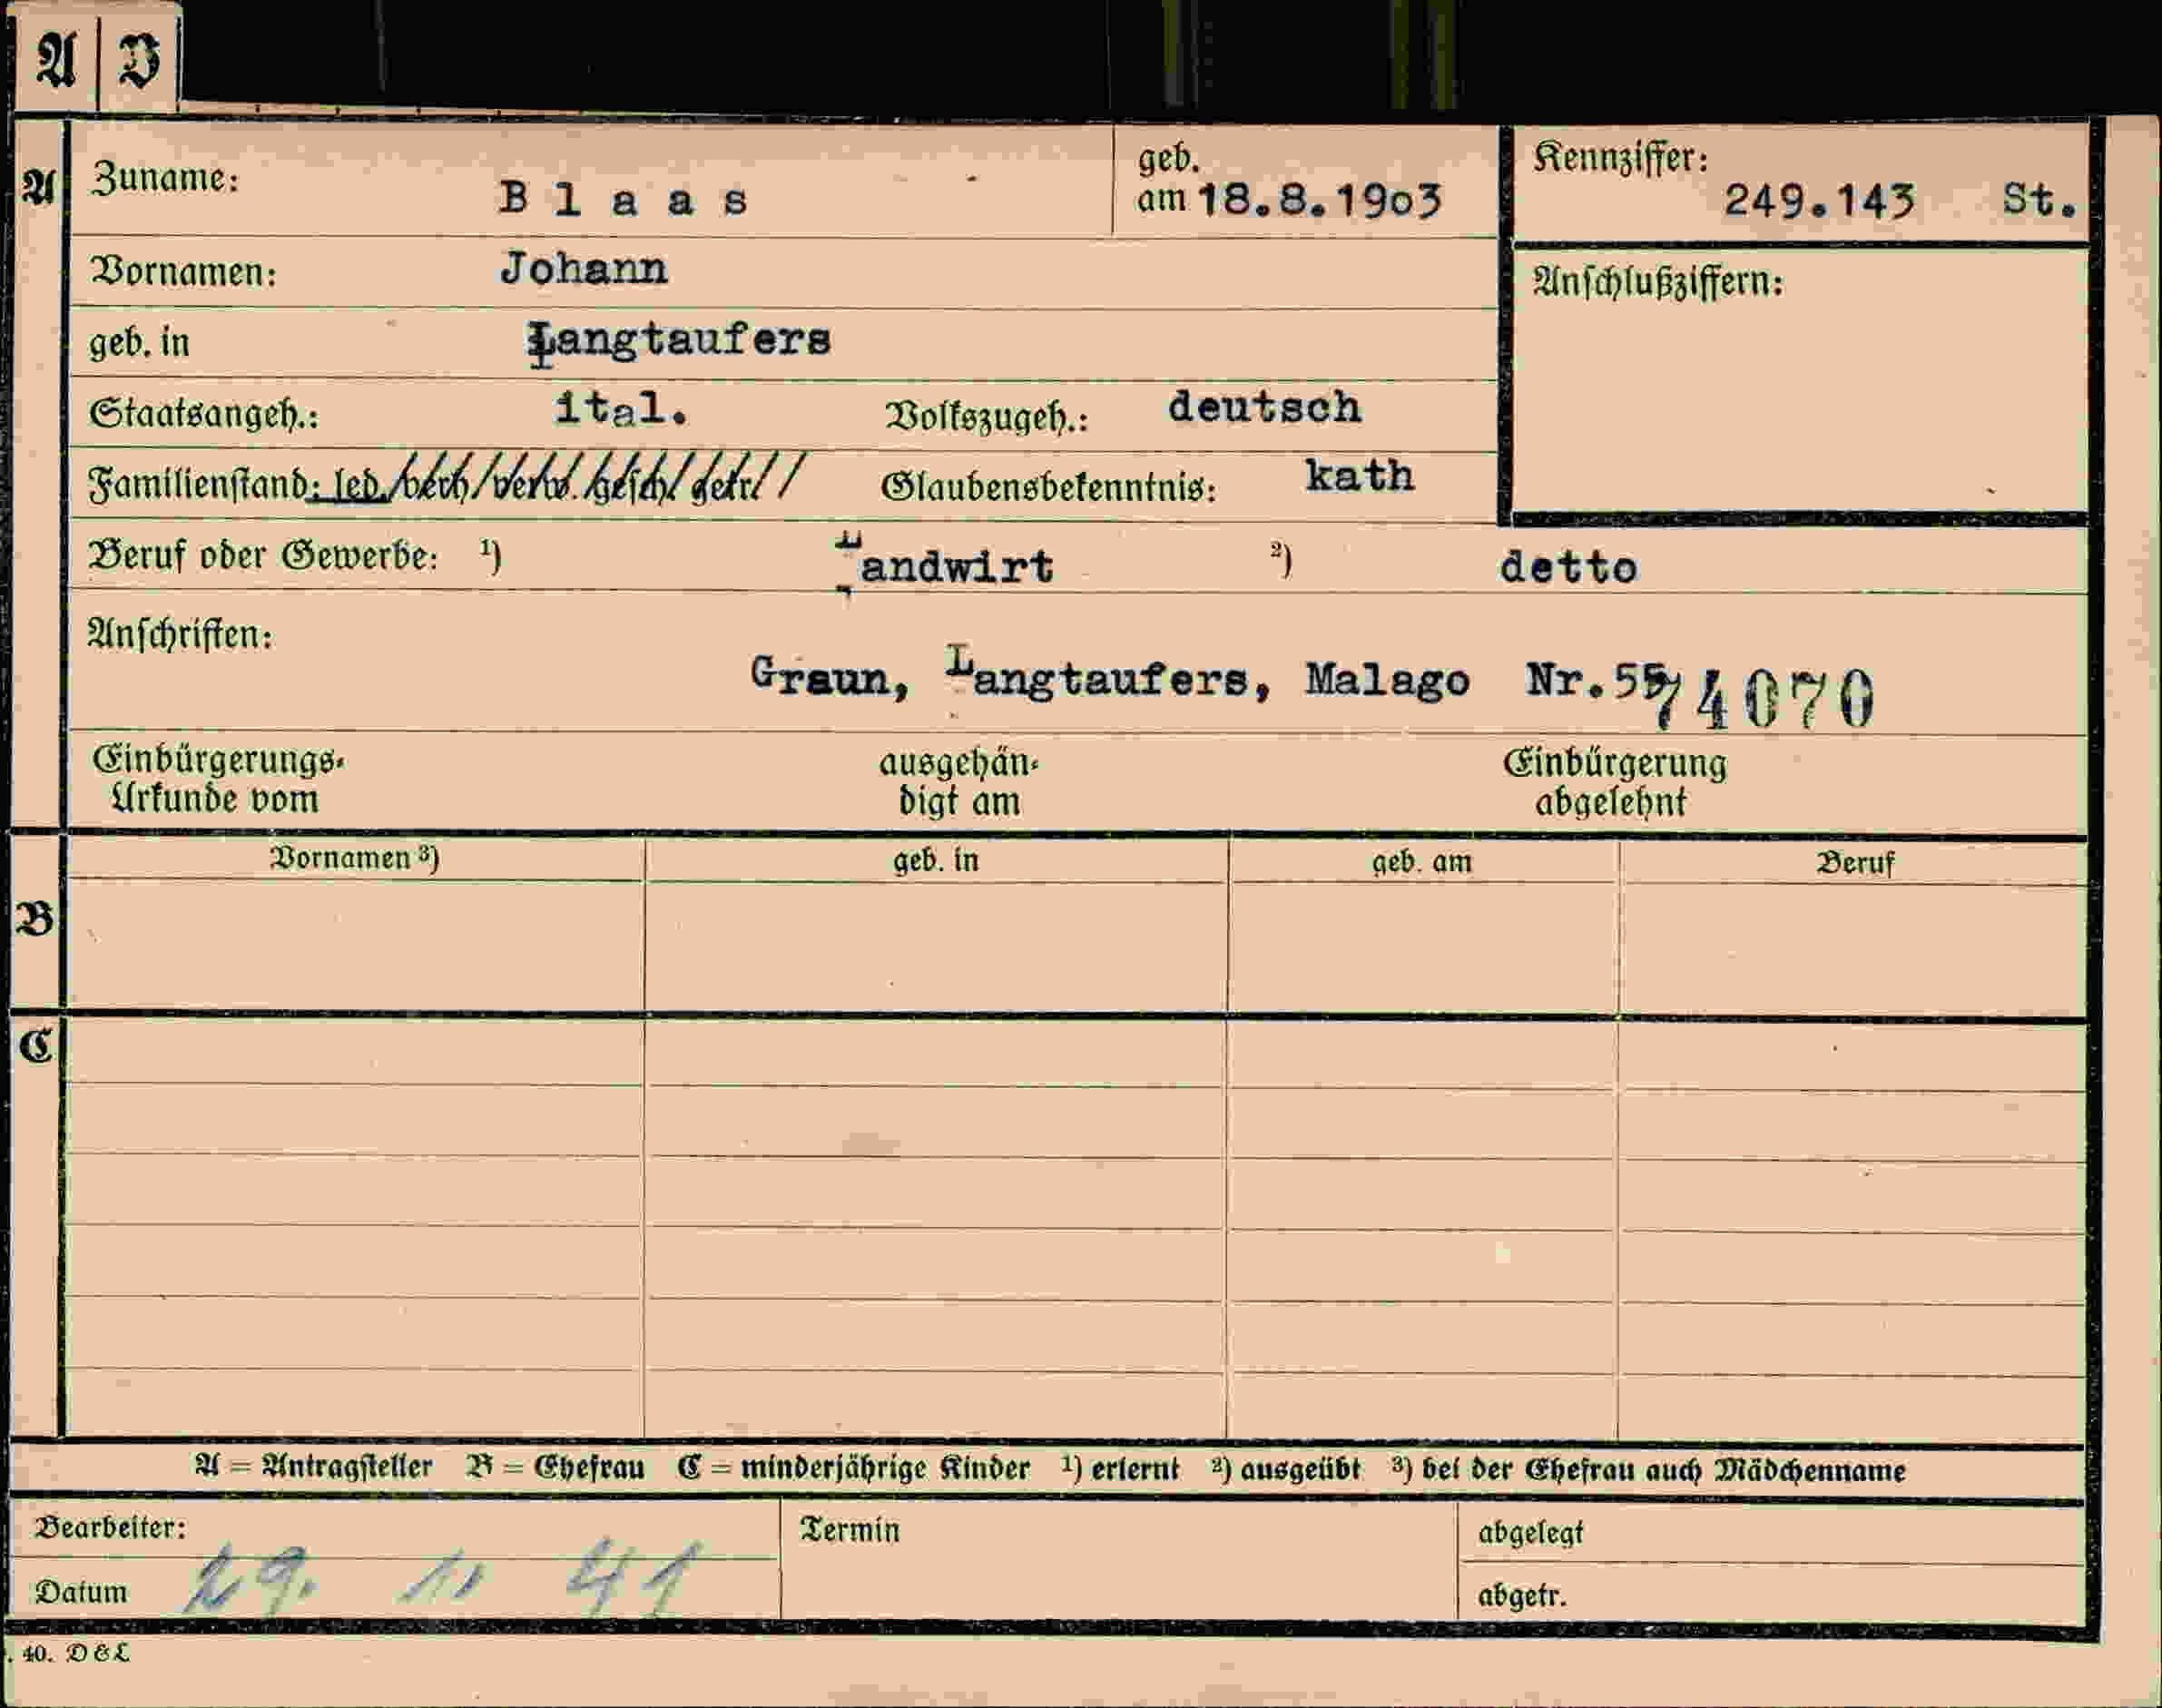 A V
A
Zuname: Blaas geb. am 18.8.1903 Kennziffer: 249.143 St.
Vornamen: Johann Anschlußziffern:
geb. in Langtaufers
Staatsangeh.: ital. Volkszugeh.: deutsch
Familienstand: led./verh/verw./gesch/getr// Glaubensbekenntnis: kath
Beruf oder Gewerbe: 1) Landwirt 2) detto
Anschriften:
Graun, Langtaufers, Malago Nr.55
74070
Einbürgerungs- Urkunde vom ausgehän- digt am Einbürgerung abgelehnt
Vornamen 3) geb. in geb. am Beruf
B
C
A = Antragsteller B = Ehefrau C = minderjährige Kinder 1) erlernt 2) ausgeübt 3) bei der Ehefrau auch Mädchenname
Bearbeiter: Termin abgelegt
Datum 29. 11 41 abgetr.
. 40. D & L